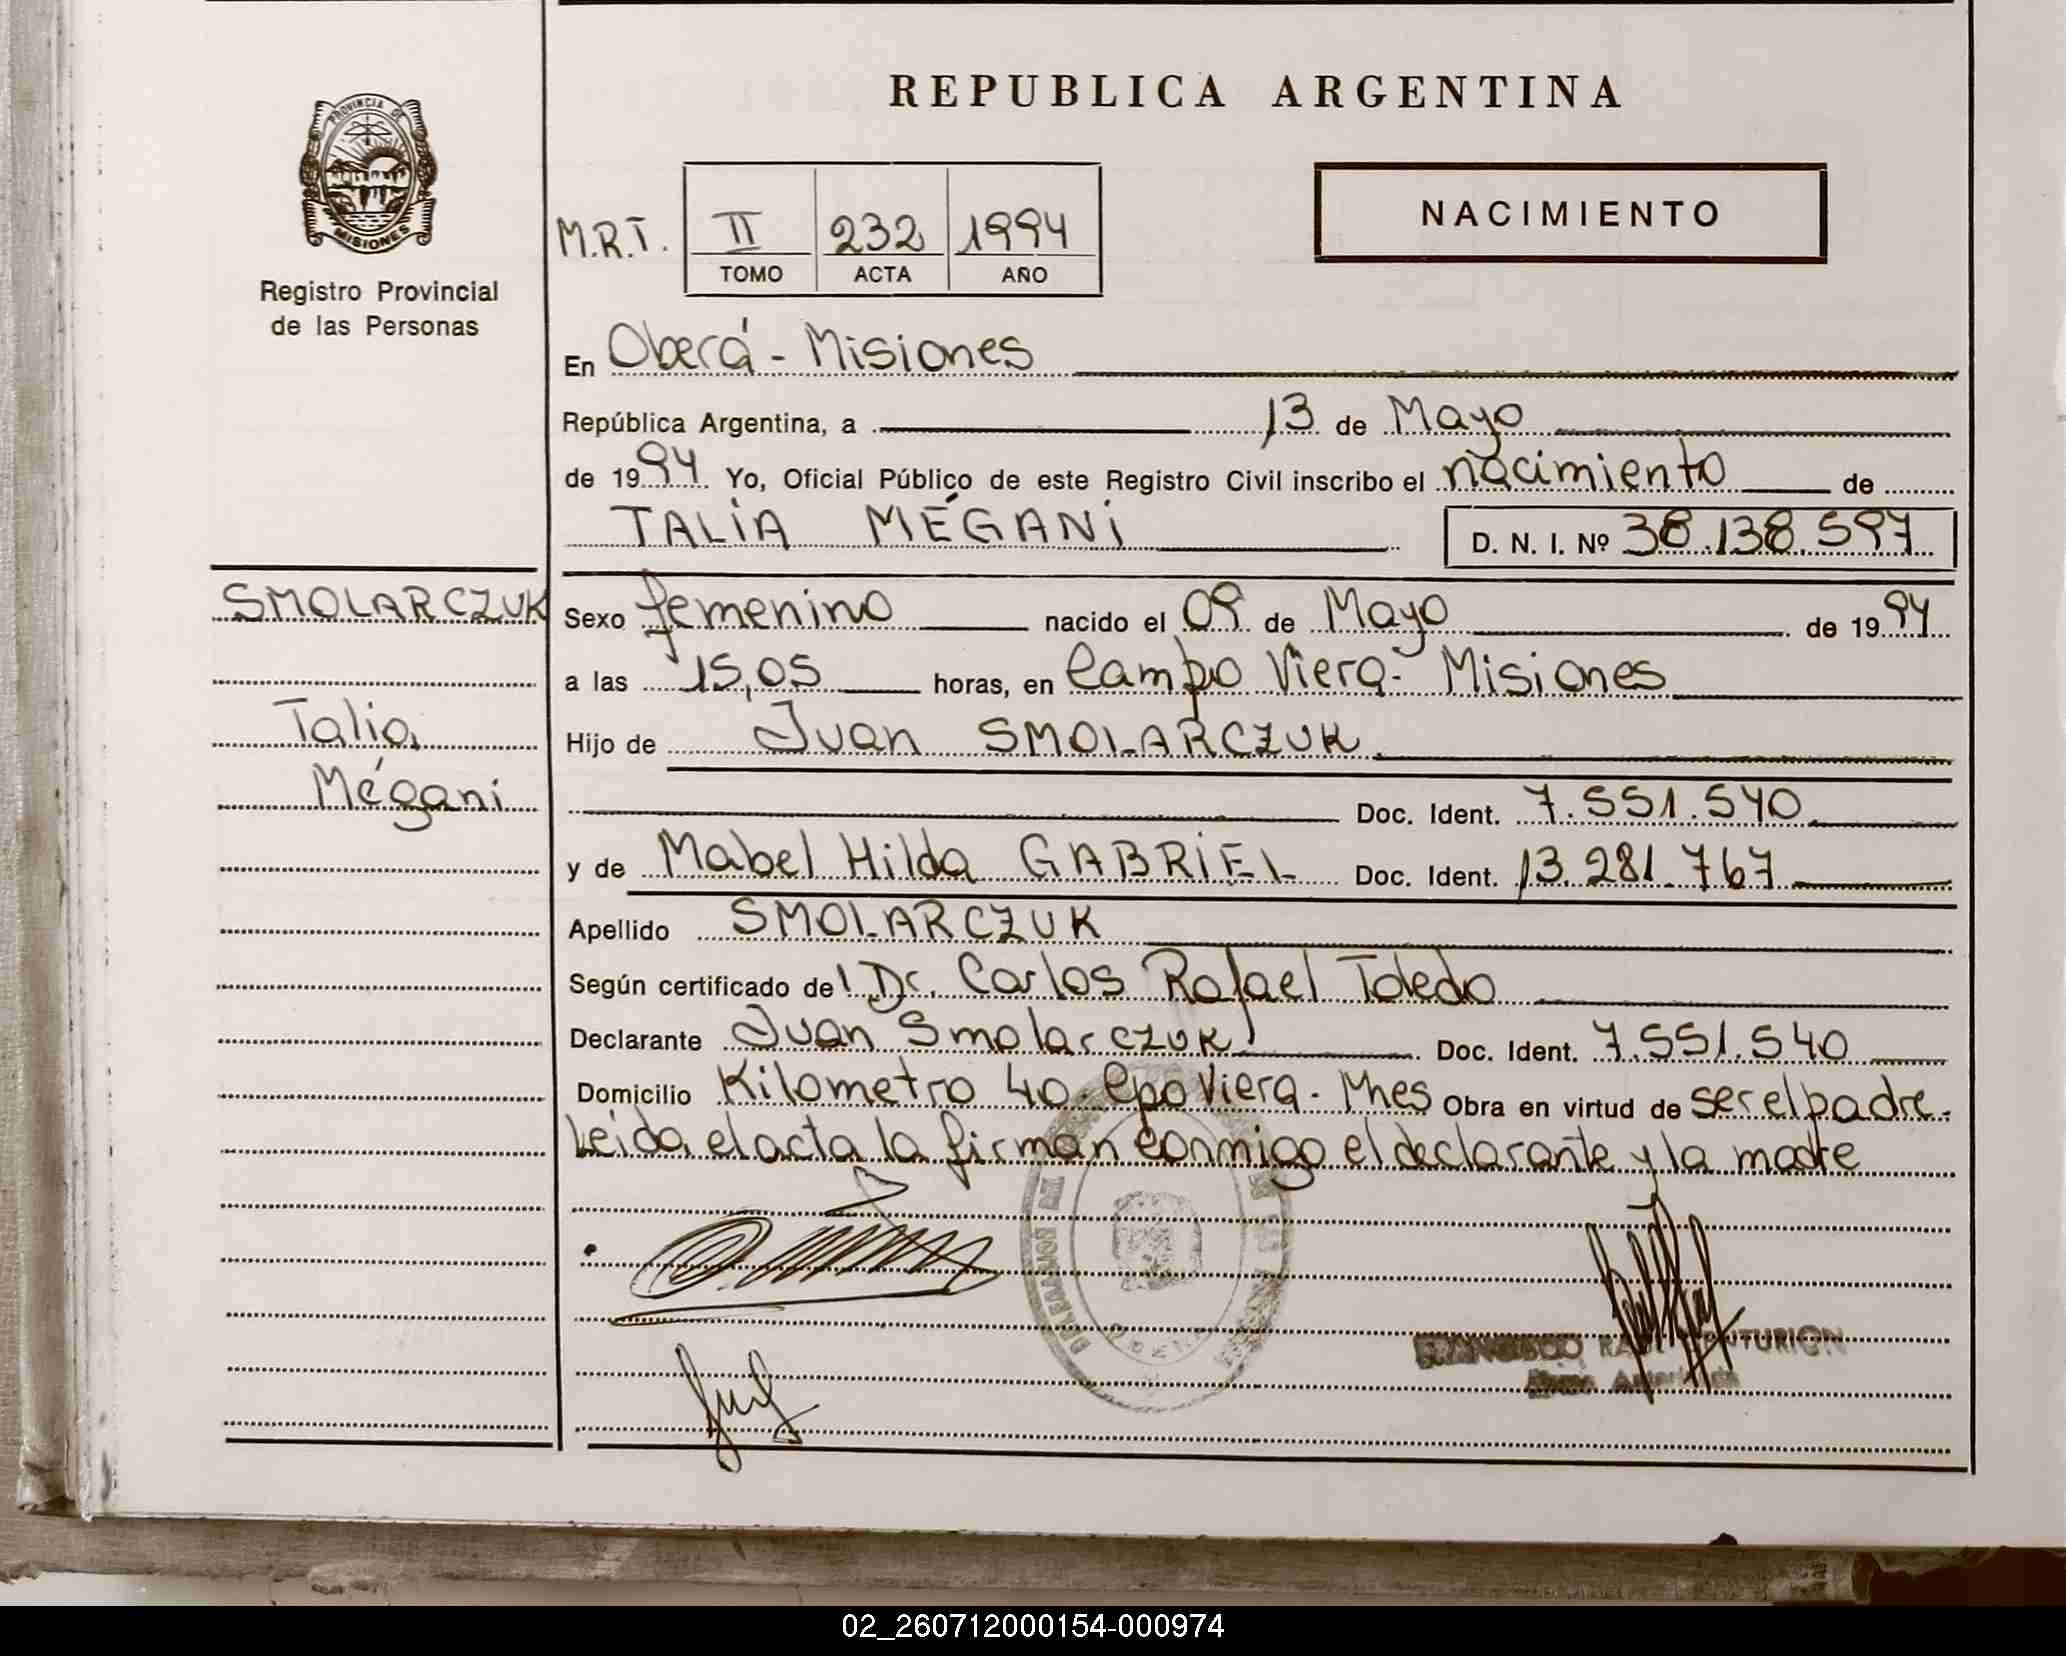 REPUBLICA ARGENTINA
PROVINCIA DE
MISIONES
Registro Provincial
de las Personas
NACIMIENTO
M.R.T. II 232 1994
TOMO ACTA AÑO
En Oberá - Misiones
República Argentina, a 13 de Mayo
de 1994. Yo, Oficial Público de este Registro Civil inscribo el nacimiento de
TALIA MÉGANI D. N. I. Nº 38.138.597
SMOLARCZUK
Talia
Mégani
Sexo femenino nacido el 09 de Mayo de 1994
a las 15,05 horas, en Campo Viera - Misiones
Hijo de Juan SMOLARCZUK
Doc. Ident. 7.551.540
y de Mabel Hilda GABRIEL Doc. Ident. 13.281.767
Apellido SMOLARCZUK
Según certificado del Dr. Carlos Rafael Toledo
Declarante Juan Smolarczuk Doc. Ident. 7.551.540
Domicilio Kilometro 40. Cpo Viera - Mnes Obra en virtud de ser el padre.
Leída el acta la firman conmigo el declarante y la madre
FRANCISCO
02_260712000154-000974